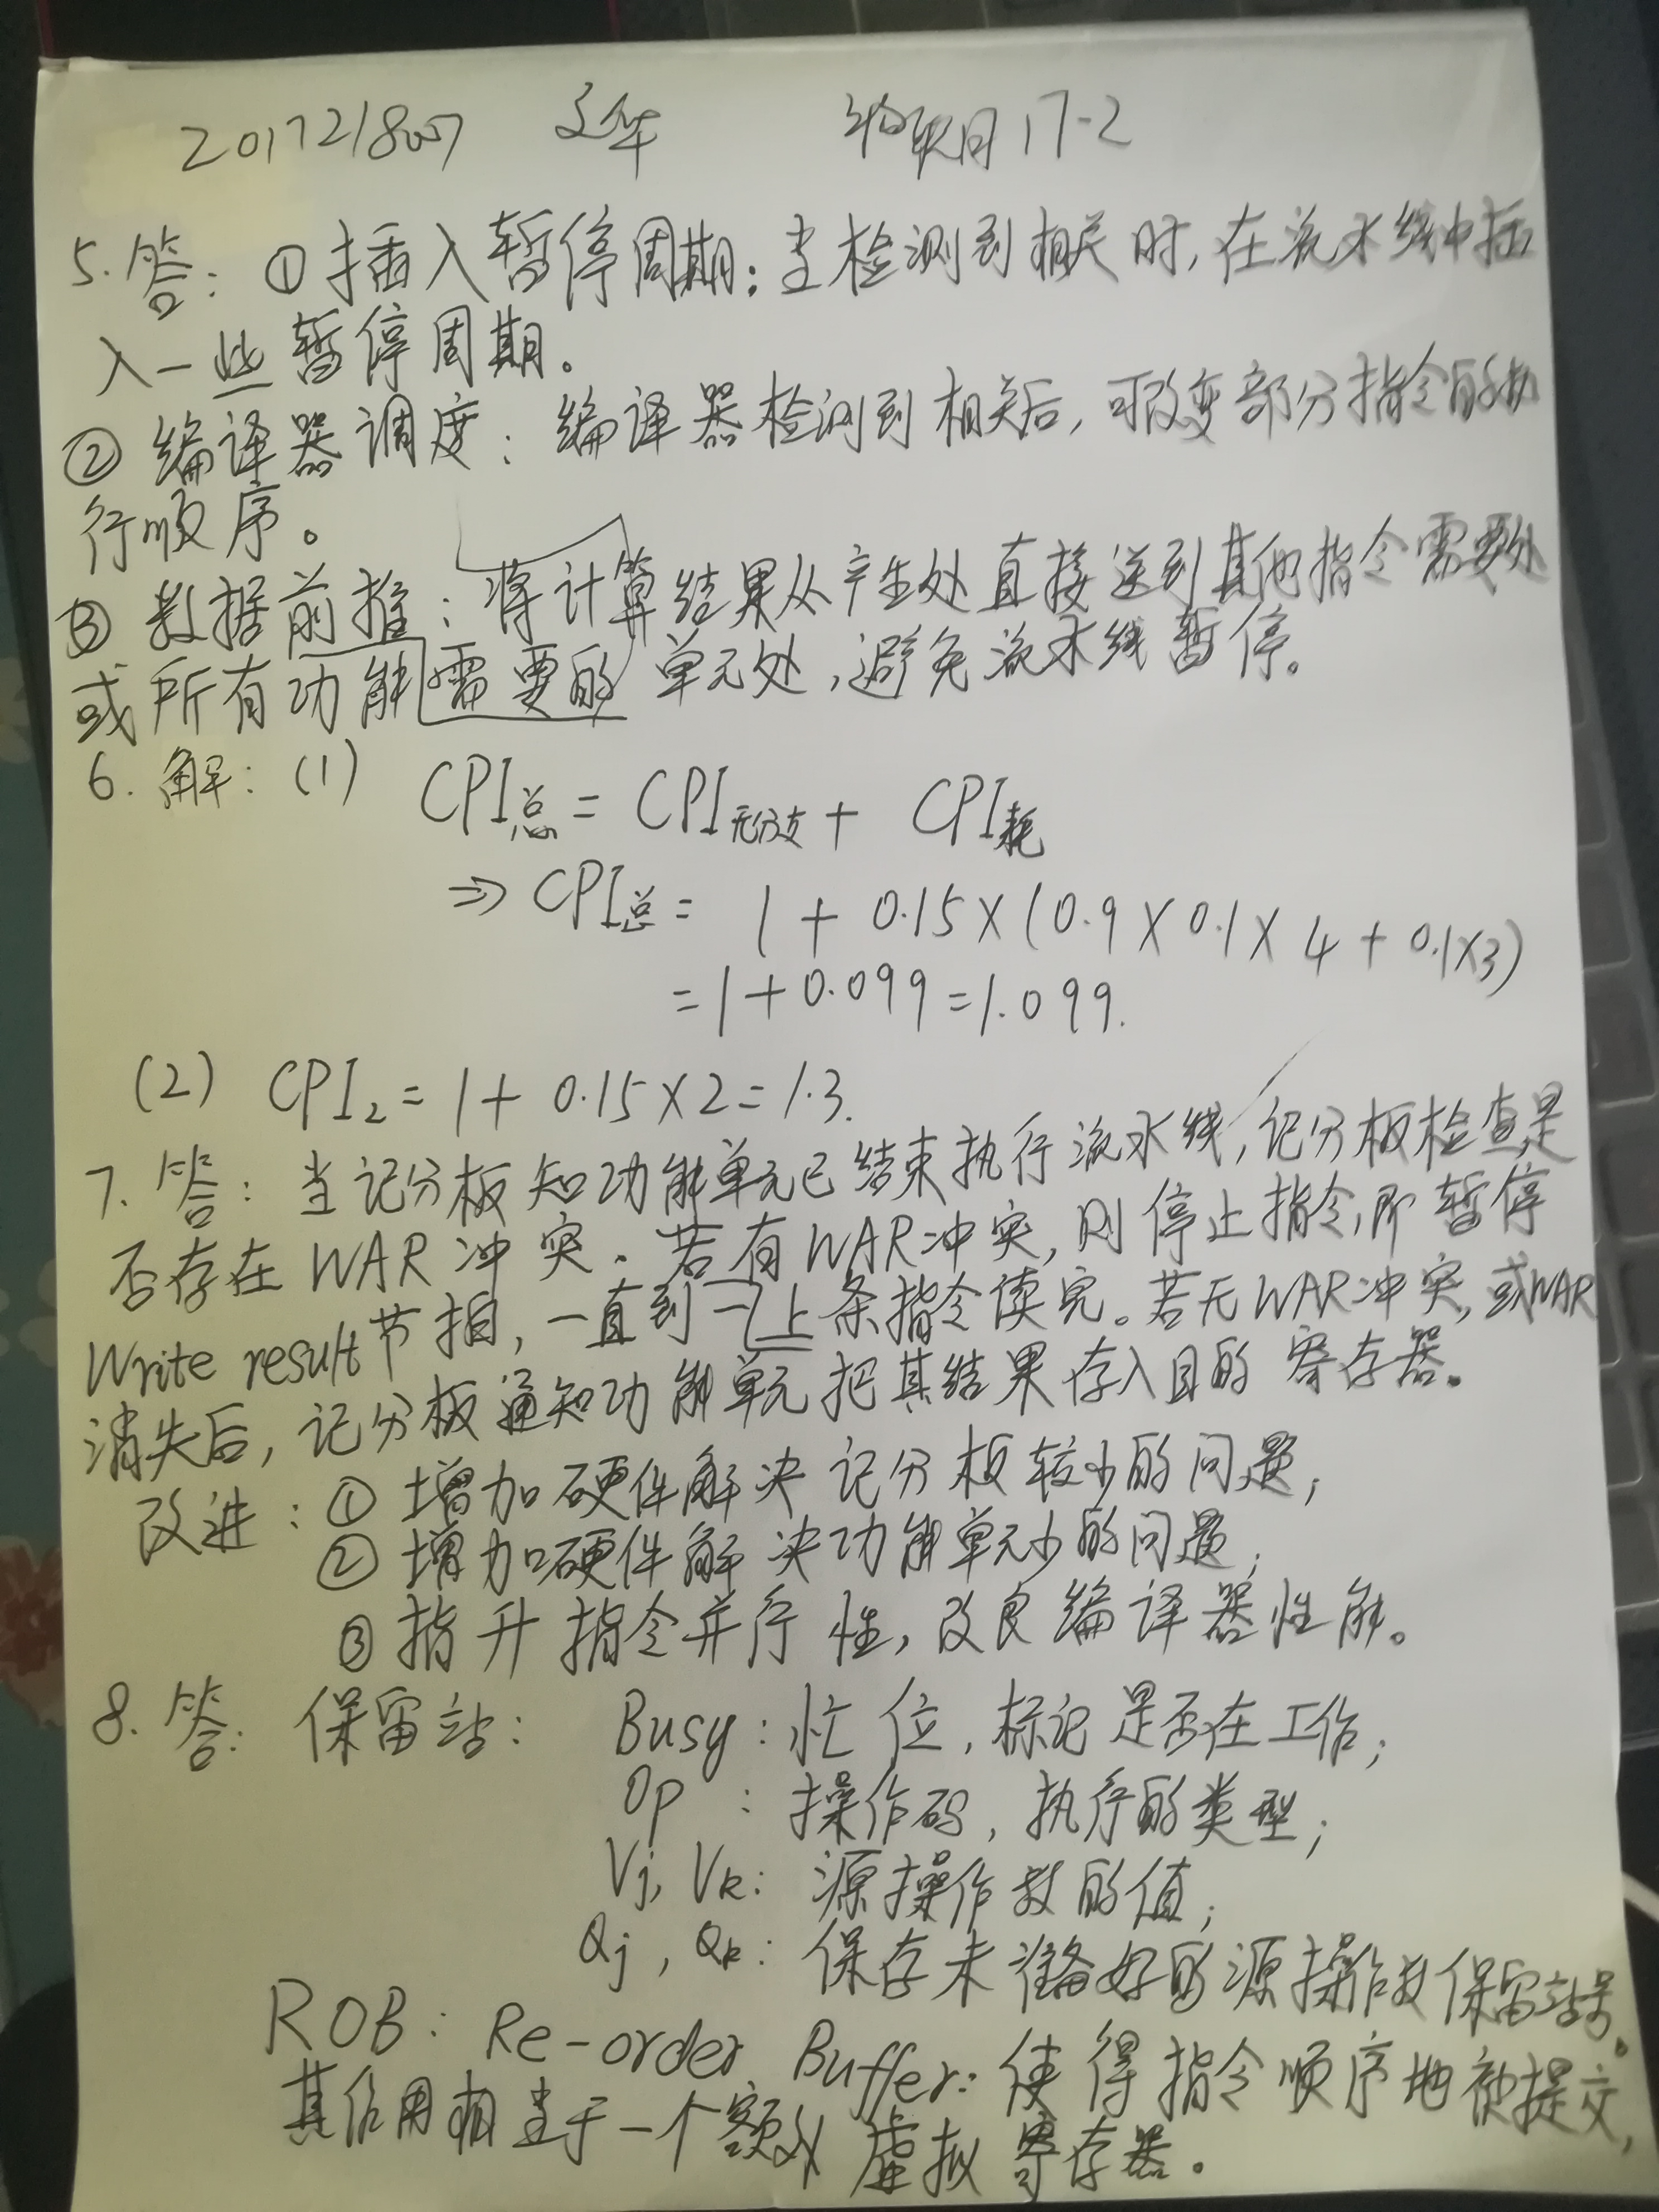 201721807 文华 17-2
5.答：①插入暂停周期：当检测到相关时，在流水线中插
入一些暂停周期。
②编译器调度：编译器检测到相关后，可改变部分指令的执
行顺序。
③数据前推：将计算结果从产生处直接送到其他指令需要处
或所有功能需要的单元处，避免流水线暂停。
6.解：(1) CPI总=CPI无分支+CPI耗
⇒CPI总=1+0.15×(0.9×0.1×4+0.1×3)
=1+0.099=1.099.
(2) CPI₂=1+0.15×2=1.3.
7.答：当记分板知功能单元已结束执行流水线，记分板检查是
否存在WAR冲突．若有WAR冲突，则停止指令，即暂停
Write result节拍，一直到一上条指令读完。若无WAR冲突，或WAR
消失后，记分板通知功能单元把其结果存入目的寄存器。
改进：①增加硬件解决记分板较少的问题；
②增加硬件解决功能单元少的问题；
③指升指令并行性，改良编译器性能。
8.答：保留站：Busy：忙位，标记是否在工作；
Op：操作码，执行的类型；
Vj，Vk：源操作数的值；
Qj，Qk：保存未准备好的源操作数保留站号。
ROB：Re-order Buffer：使得指令顺序地被提交，
其作用相当于一个额外虚拟寄存器。